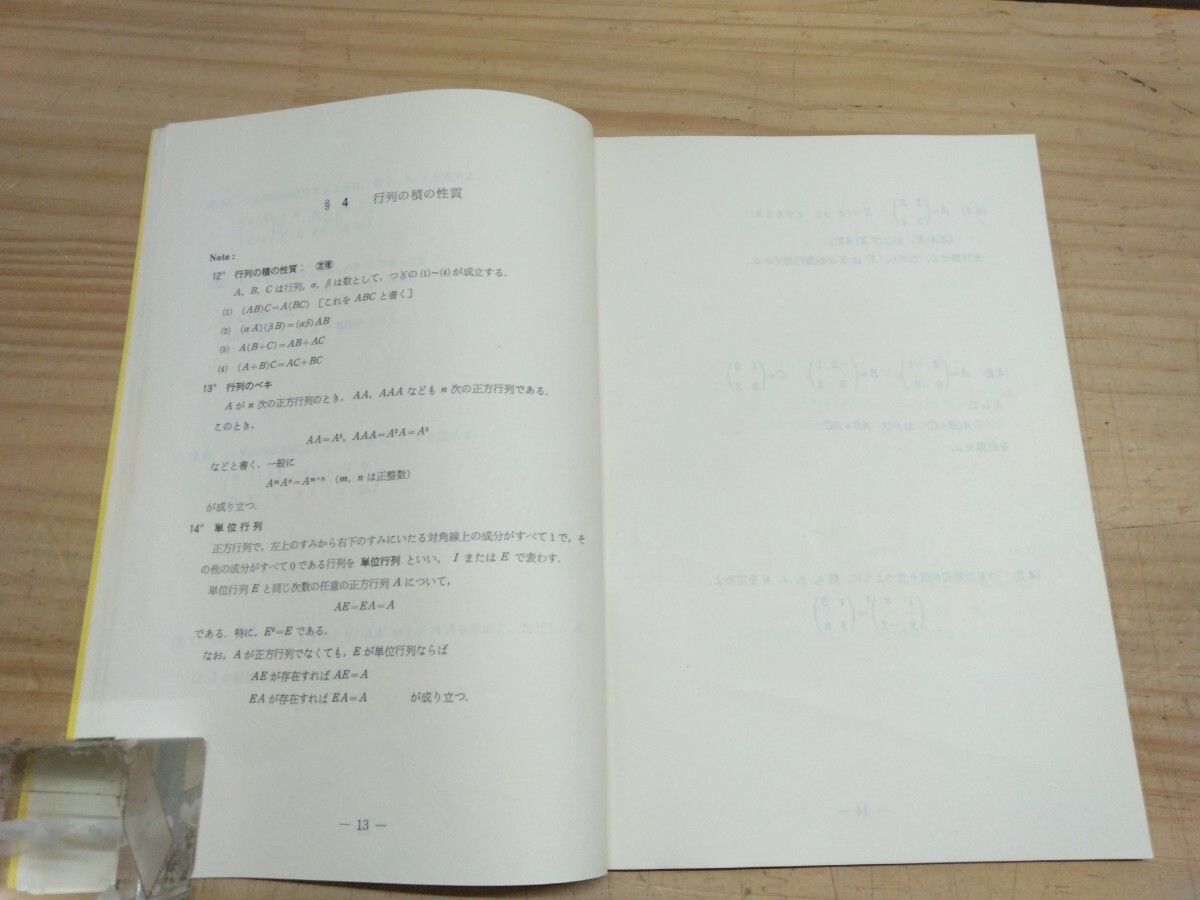 § 4 行列の積の性質
Note:
12° 行列の積の性質: 定理
A, B, C は行列, α, β は数として, つぎの (1)~(4) が成立する.
(1) (AB)C=A(BC) [これを ABC と書く]
(2) (αA)(βB)=(αβ)AB
(3) A(B+C)=AB+AC
(4) (A+B)C=AC+BC
13° 行列のベキ
A が n 次の正方行列のとき, AA, AAA なども n 次の正方行列である.
このとき,
AA=A², AAA=A²A=A³
などと書く. 一般に
(m, n は正整数)
が成り立つ.
14° 単位行列
正方行列で, 左上のすみから右下のすみにいたる対角線上の成分がすべて 1 で, そ
の他の成分がすべて 0 である行列を 単位行列 といい, I または E で表わす.
単位行列 E と同じ次数の任意の正方行列 A について,
AE=EA=A
である. 特に, E²=E である.
なお, A が正方行列でなくても, E が単位行列ならば
AE が存在すれば AE=A
EA が存在すれば EA=A が成り立つ.
— 13 —